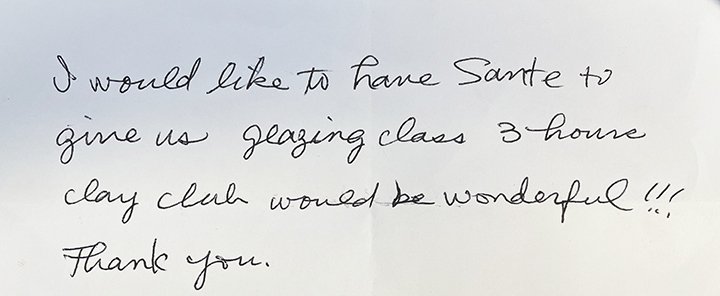 I would like to have Sante to
give us glazing class 3-hour
clay club would be wonderful!!!
Thank you.